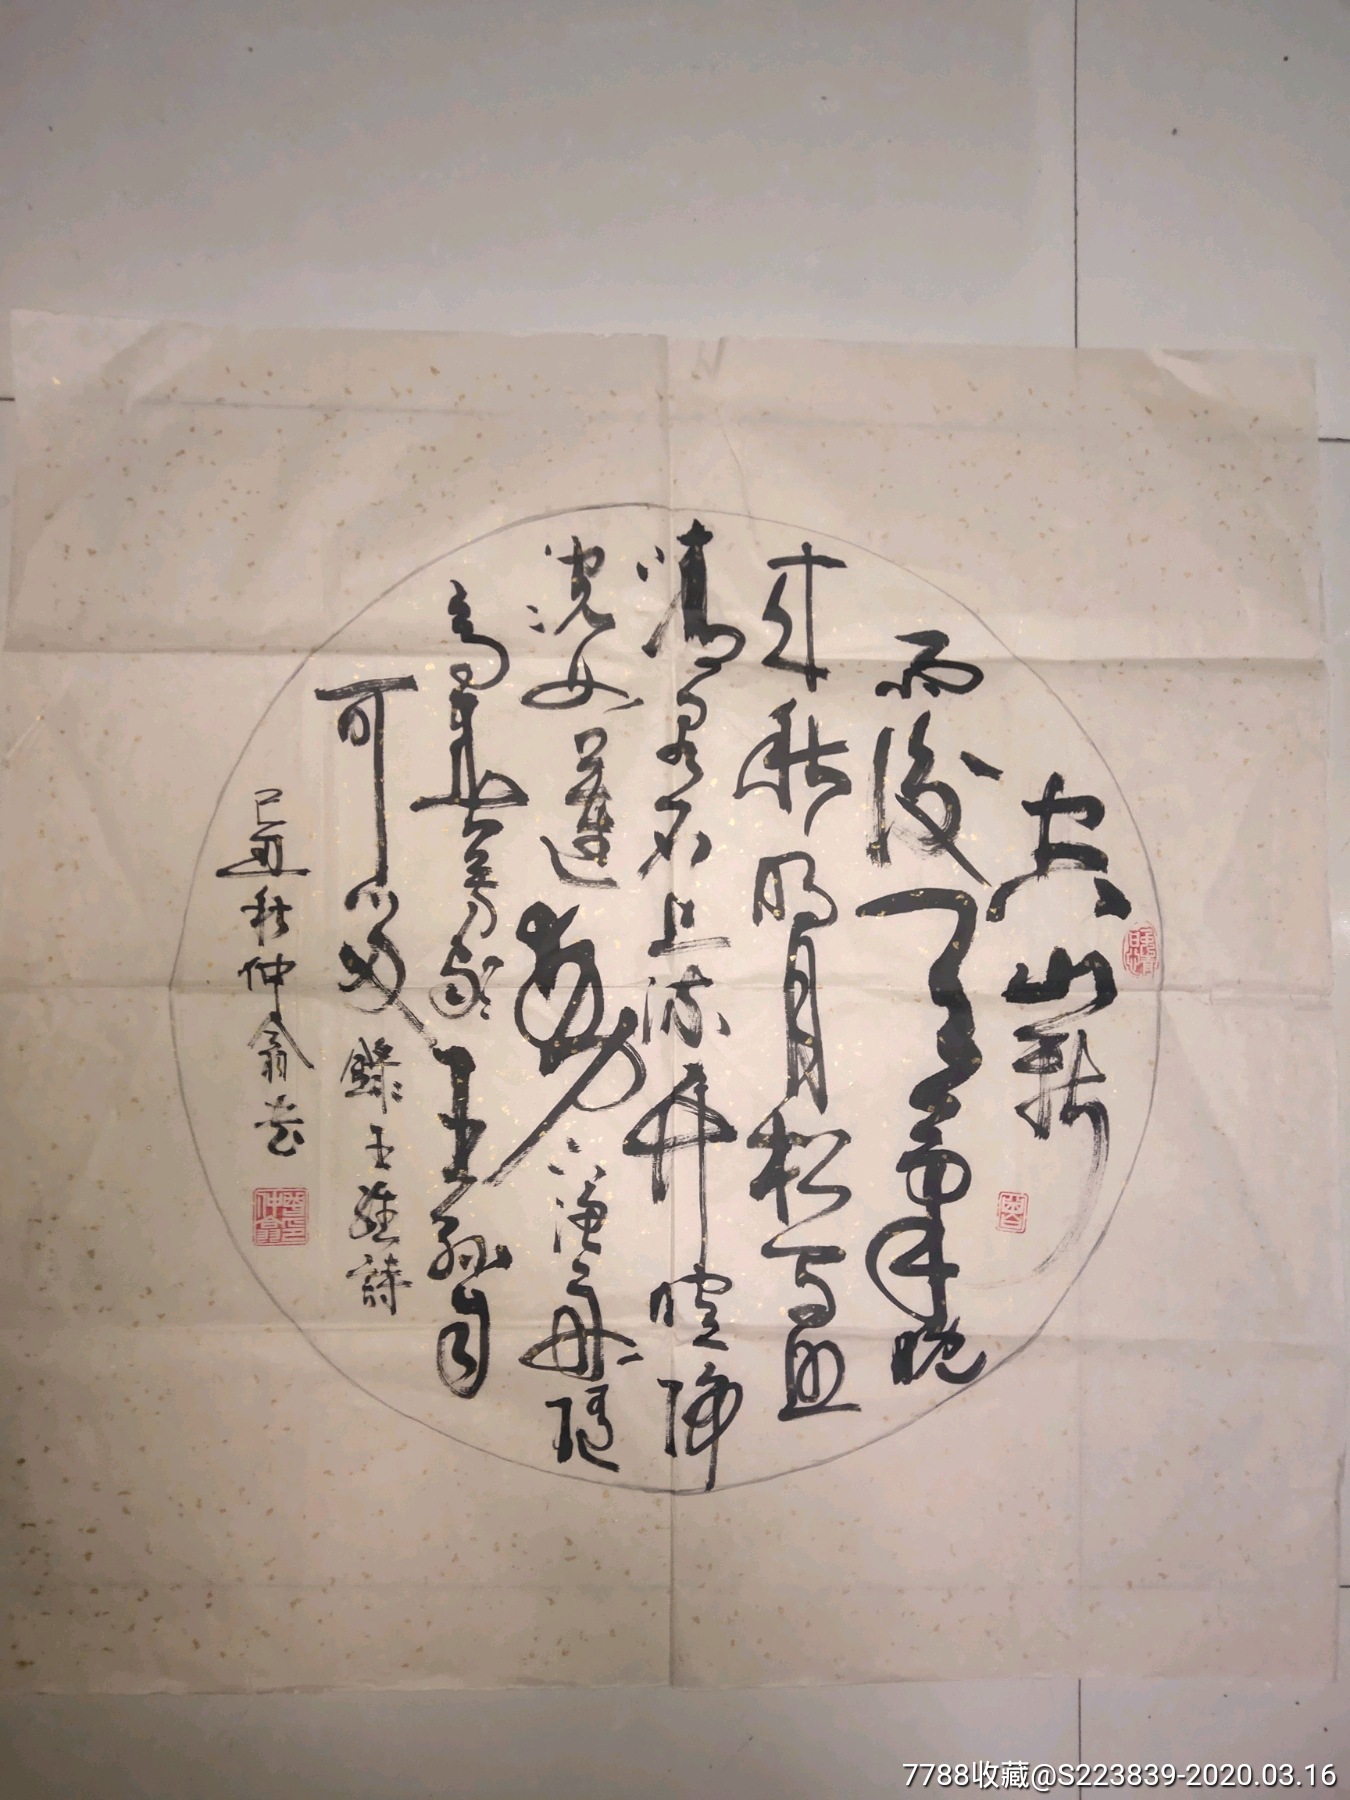 空山新
雨後天氣晚
來秋明月松間照
清泉石上流竹喧歸
浣女蓮動下漁舟隨
意春芳歇王孫自
可留錄王維詩
己丑秋仲翁書
7788收藏@S223839-2020.03.16